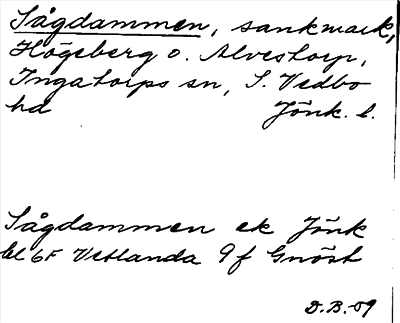 Sågdammen, sankmark,
Högeberg o. Alvestorp,
Ingatorps sn, S. Vedbo
hd Jönk. l.
Sågdammen ek Jönk
bl 6F Vetlanda 9f Gnöst
D.B.-59